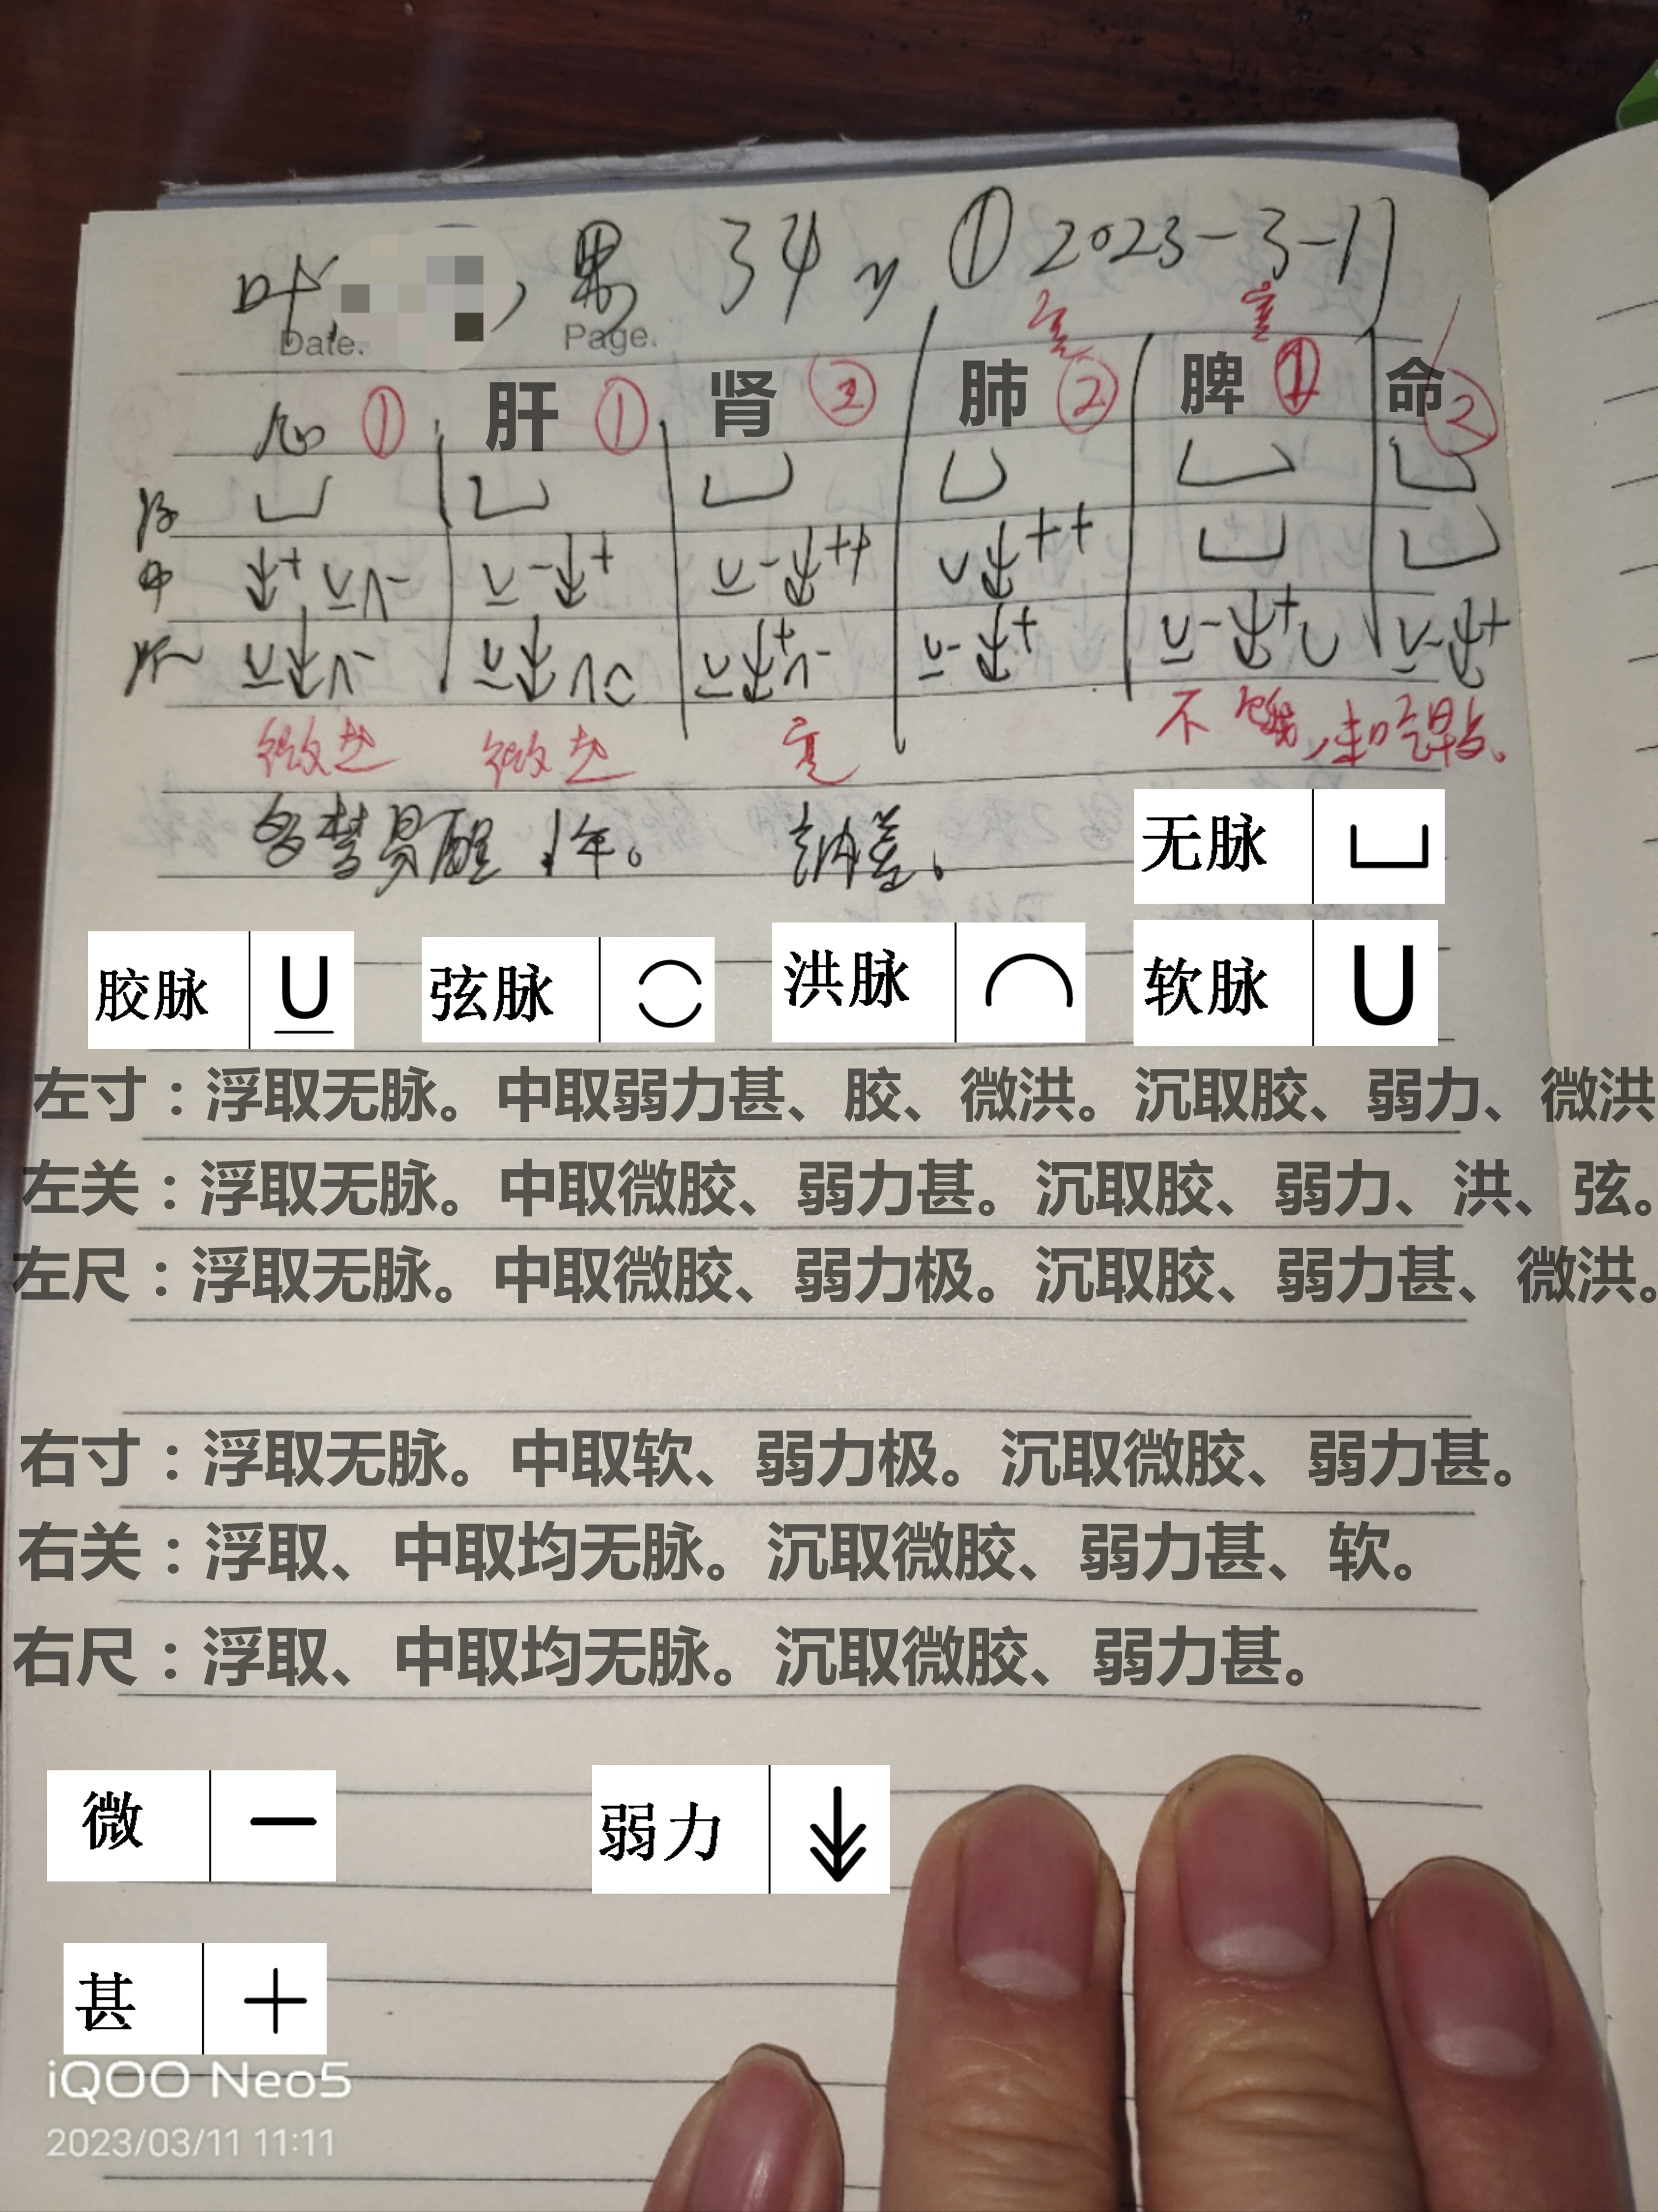 叶 , 男 34y ① 2023-3-11
Date. Page.
心 ① 肝 ① 肾 ② 肺 ② 脾 ① 命 ②
浮
中 + - - + - ++ ++
沉 - + - - + - + - +
微 微 不饿,未吃早点。
多梦易醒1年。 纳差。
无脉
胶脉 弦脉 洪脉 软脉
左寸:浮取无脉。中取弱力甚、胶、微洪。沉取胶、弱力、微洪
左关:浮取无脉。中取微胶、弱力甚。沉取胶、弱力、洪、弦。
左尺:浮取无脉。中取微胶、弱力极。沉取胶、弱力甚、微洪。
右寸:浮取无脉。中取软、弱力极。沉取微胶、弱力甚。
右关:浮取、中取均无脉。沉取微胶、弱力甚、软。
右尺:浮取、中取均无脉。沉取微胶、弱力甚。
微 — 弱力
甚 +
iQOO Neo5
2023/03/11 11:11